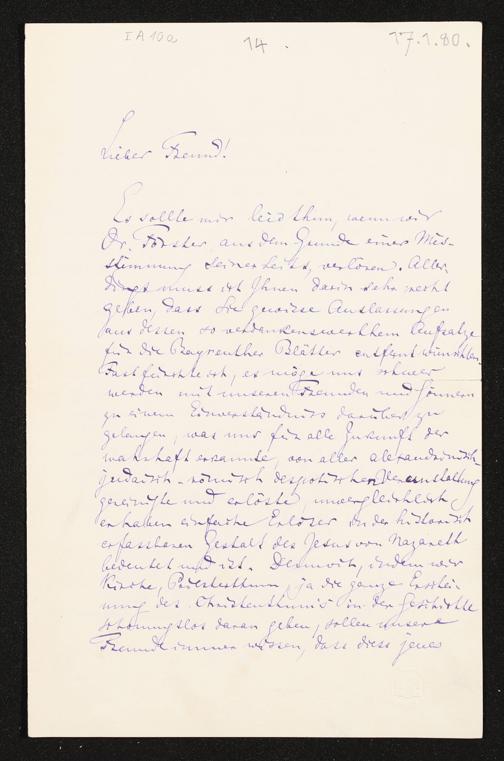 I A 10 a
14.
17.1.80.
Lieber Freund!
Es sollte mir leid thun, wenn wir
Dr. Förster, aus dem Grunde einer Miss-
stimmung seinerseits, verlören. Aller-
dings muss ich Ihnen darin sehr recht
geben, dass Sie gewisse Auslassungen
aus dessen so verdankenswerthem Aufsatze
für die Bayreuther Blätter entfernt wünschten.
Fast fürchte ich, es möge uns schwer
werden mit unseren Freunden und Gönnern
zu einem Einverständniss darüber zu
gelangen, was uns für alle Zukunft der
wahrhaft erkannte, von aller alexandrinisch-
judaisch-römisch despotischen Verunstaltung
gereinigte und erlöste, unvergleichlich
erhaben einfache Erlöser in der historisch
erfassbaren Gestalt des Jesus von Nazareth
bedeutet und ist. Dennoch, indem wir
Kirche, Priesterthum, ja die ganze Erschei-
nung des Christenthum's in der Geschichte
schonungslos daran geben, sollen unsere
Freunde immer wissen, dass diess jenes